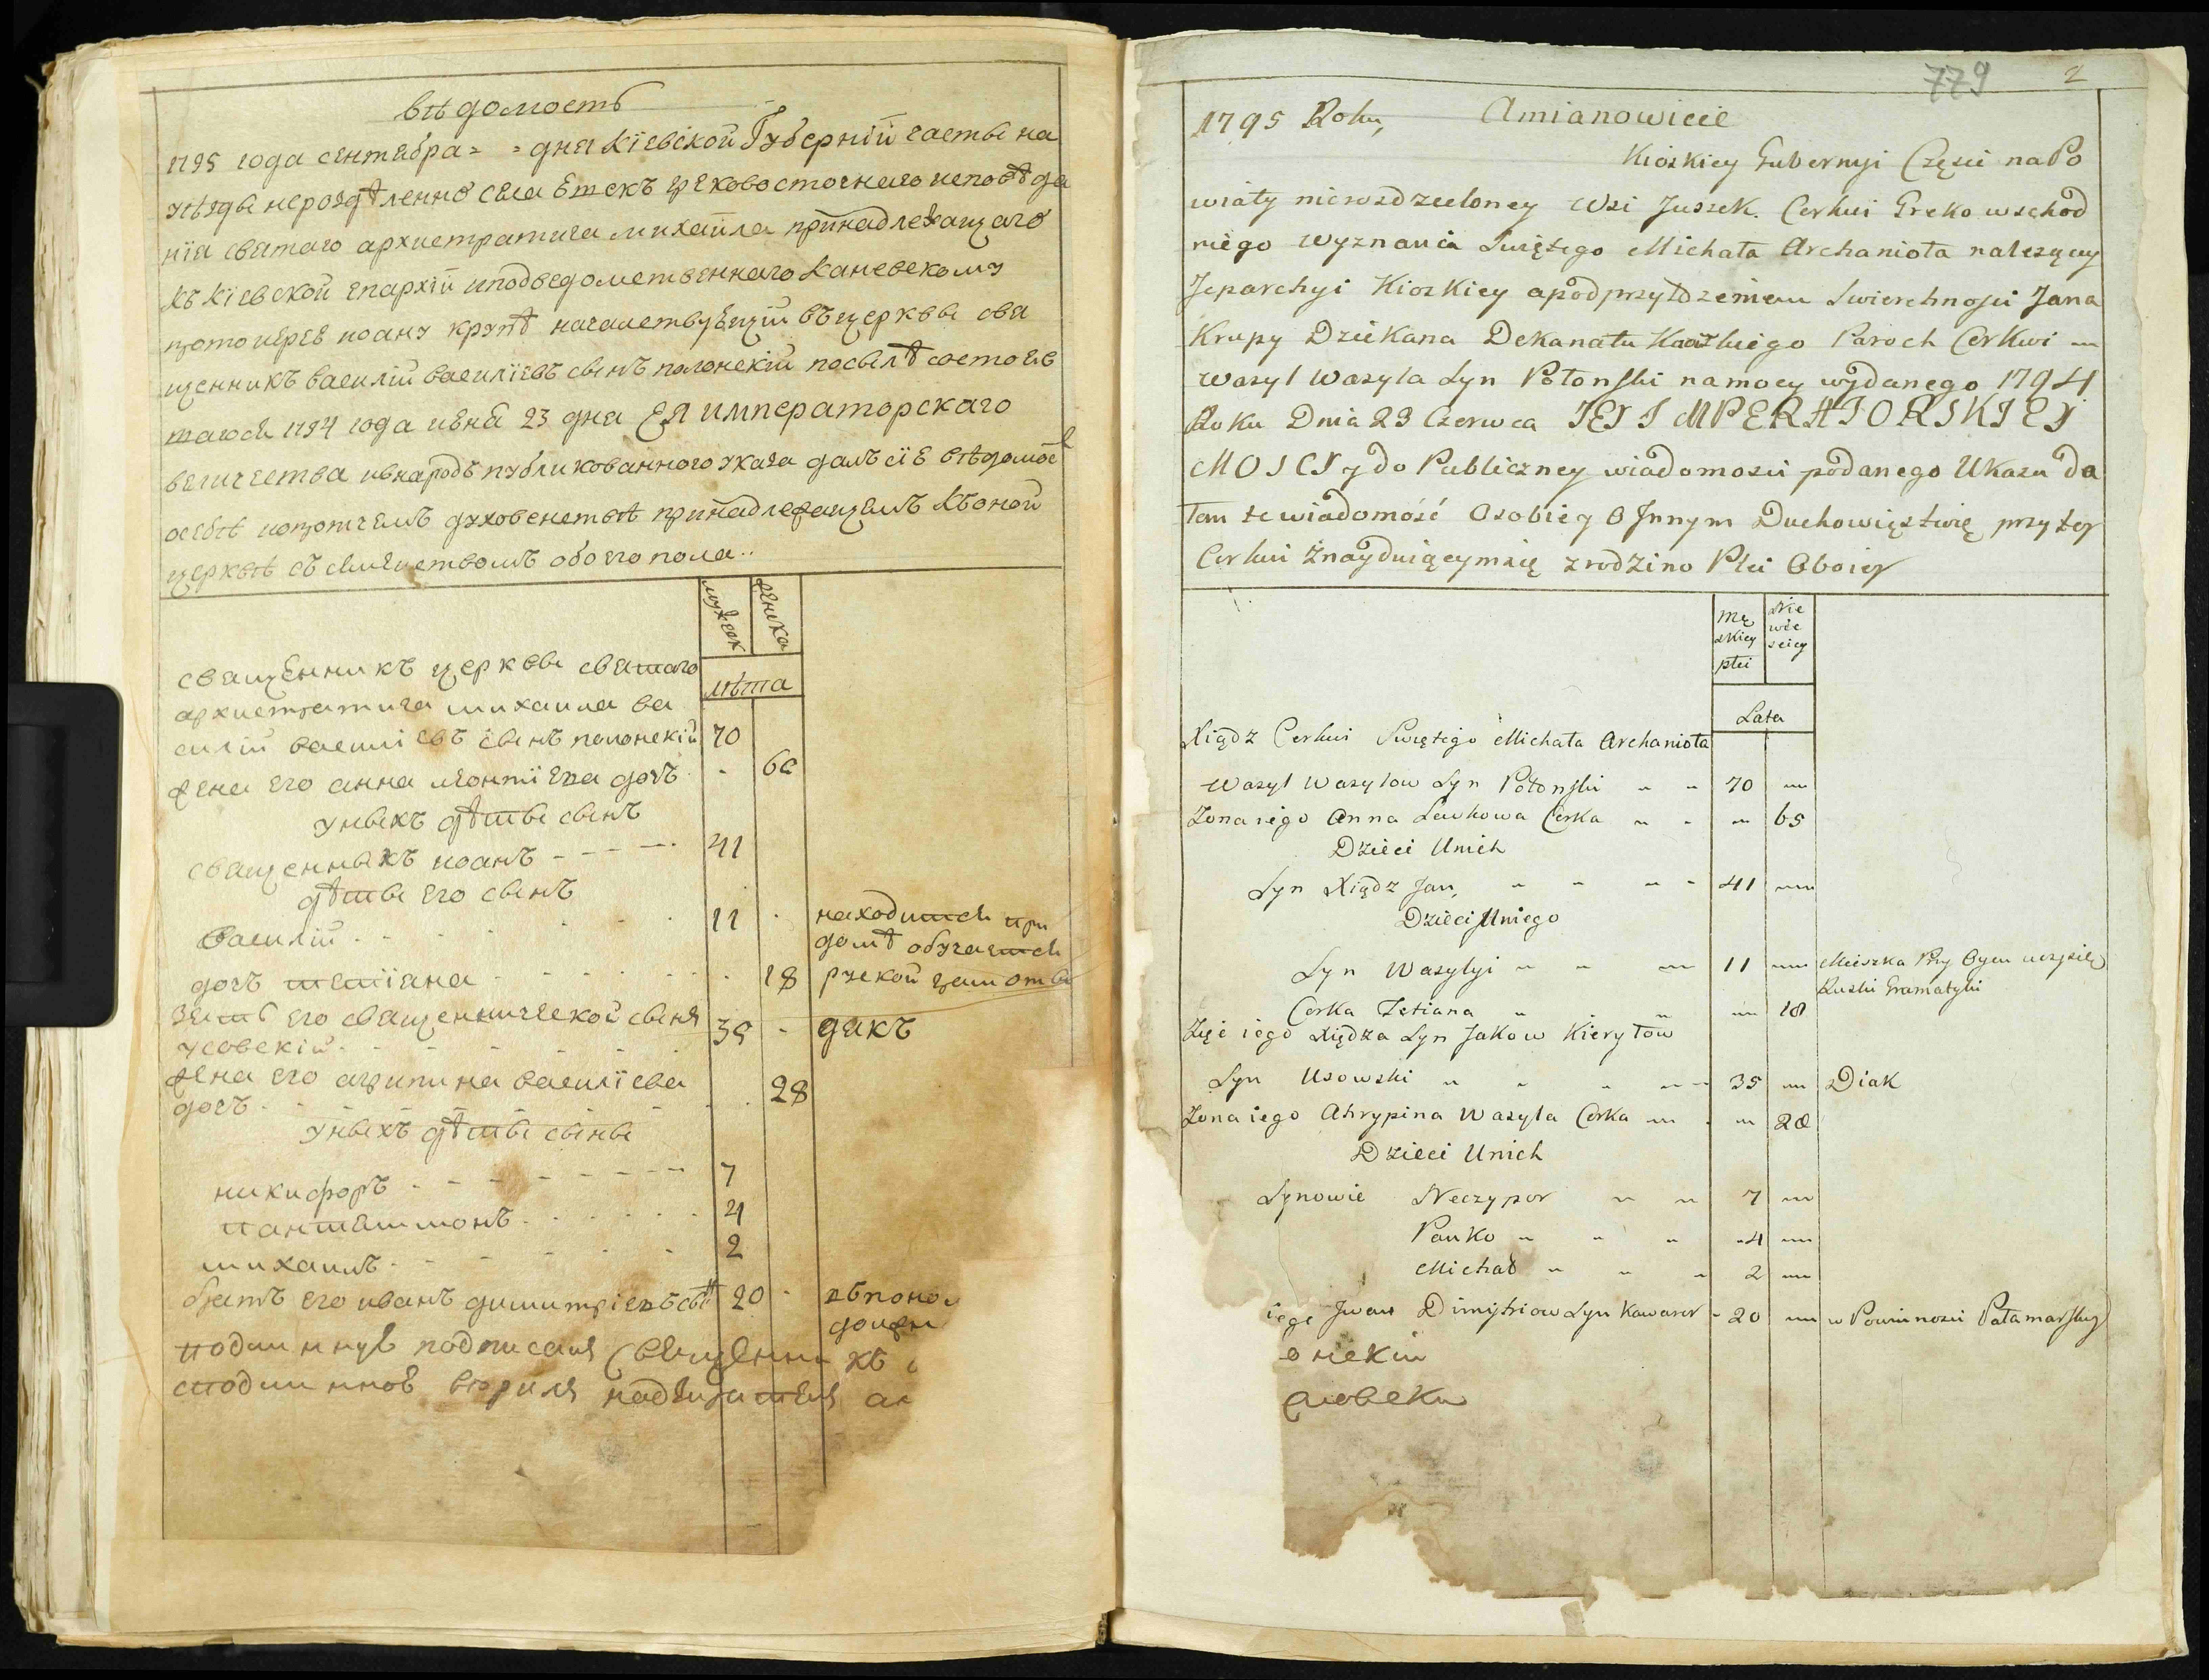 вѣдомость
1795 года сентября = = дня Кіевской Губерній часты на
уѣзды нероздѣленно села Ющекъ грековосточнаго исповѣда
нія святаго архистратига михаила принадлежащаго
къ Кіевской епархій иподведомственнаго Каневскому
протоиерею иоану крупѣ началствующій въ церквы свя
щенникъ василій василіевъ сынъ полонскій посылѣ состояв
шагося 1794 года июня 23 дня ЕЯ императорскаго
величества ивнародъ публикованного указа далъ сіе вѣдомос
осебѣ ипротчемъ духовенствѣ принадлежащемъ Кь оной
церквѣ съ симействомъ обоего пола..
мужеск
женска
лѣта
священникъ церквы святаго
архистратига михаила ва
силій василіевъ сынъ полонскій 70
жена его анна леонтіева дочъ - 60
унихъ дѣты сынъ
священныкъ иоанъ - - - - - 41
дѣты его сынъ
василій - - - - - 11 - находится при
домѣ обучается
дочъ тетіяна - - - - - 18 рускои грамоты
зять его священническои сынъ
усовскій - - - - - 35 - дякъ
жена его агрипина василіева
дочъ - - - - - 28
унихъ дѣты сыны
никифоръ - - - - - 7
пантелимонъ - - - - - 4
михаилъ - - - - - 2
братъ его иванъ димитріевъ сы 20 - вь поно
должн
подлинную подписалъ Священникъ
сподлинною вѣрилъ надзиратель

779 2
1795 Roku, Amianowicie
Kiozkiey Gubernyi Części na Po
wiaty nierozdzieloney Wsi Juszek. Cerkwi Greko wschod
niego wyznania Swiętego Michała Archanioła należącey
Jeparchyi Kiozkiey apod przyłdzeniem Swierchnosci Jana
Krupy Dziekana Dekanatu Paroch Cerkwi
Wazyl Wazyla Syn Połonski na mocy wydanego 1794
Roku Dnia 23 Czerwca JEJ IMPERATORSKIEJ
MOSCI, y do Publiczney wiadomosci podanego Ukazu da
łem te wiadomość O sobie y O Jnnym Duchowięstwię przy tey
Cerkwi znayduiącym się z rodzino Płci Oboiey
Mę
zkiey
płci
Nie
wie
sciey
Lata
Xiądz Cerkwi Swiętego Michała Archanioła
Wazyl Wazylow Syn Połonski 70
Zona iego Anna Lewkowa Corka 65
Dzieci Unich
Syn Xiądz Jan 41
Dzieci Uniego
Syn Wazylyi 11 Mieszka Przy Oycu uczy się
Ruski Gramatyki
Corka Tetiana 18
Zięć iego Xiędza Syn Jakow Kierylow
Syn Usowski 35 Diak
Zona iego Ahrypina Wazyla Corka 28
Dzieci Unich
Synowie Neczypor 7
Pańko 4
Michał 2
iego Jwan Dimijtriow Syn Kawaler 20 w Powinnosci Pałamarskiej
онский